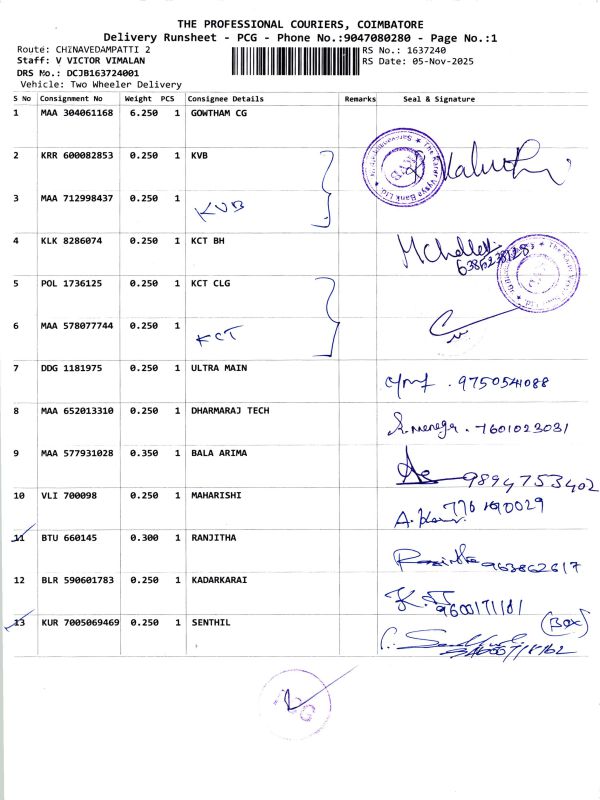 THE PROFESSIONAL COURIERS, COIMBATORE
Delivery Runsheet - PCG - Phone No.:9047080280 - Page No.:1
Route: CHINAVEDAMPATTI 2 RS No.: 1637240
Staff: V VICTOR VIMALAN RS Date: 05-Nov-2025
DRS No.: DCJB163724001
Vehicle: Two Wheeler Delivery
S No Consignment No Weight PCS Consignee Details Remarks Seal & Signature
1 MAA 304061168 6.250 1 GOWTHAM CG
2 KRR 600082853 0.250 1 KVB
3 MAA 712998437 0.250 1 KVB
4 KLK 8286074 0.250 1 KCT BH
5 POL 1736125 0.250 1 KCT CLG
6 MAA 578077744 0.250 1 KCT
7 DDG 1181975 0.250 1 ULTRA MAIN 9750541088
8 MAA 652013310 0.250 1 DHARMARAJ TECH 7601023031
9 MAA 577931028 0.350 1 BALA ARIMA 9894753402
10 VLI 700098 0.250 1 MAHARISHI
11 BTU 660145 0.300 1 RANJITHA
12 BLR 590601783 0.250 1 KADARKARAI 9600171181
13 KUR 7005069469 0.250 1 SENTHIL (Box)